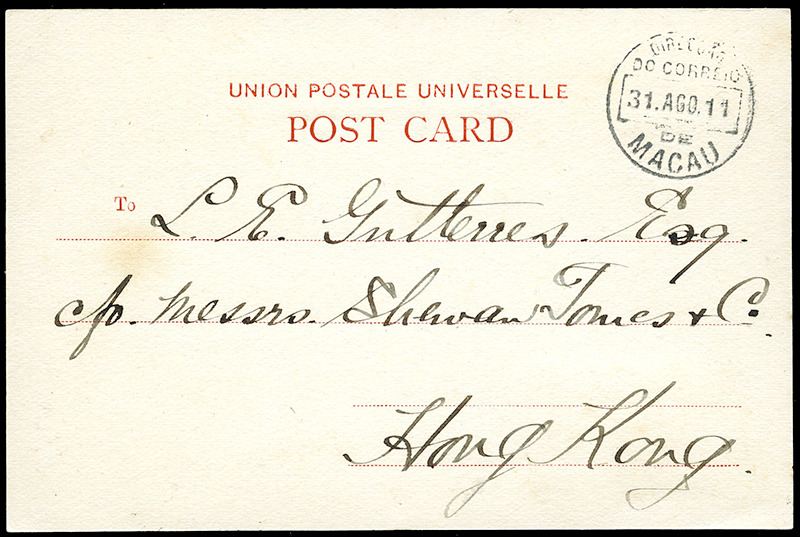 UNION POSTALE UNIVERSELLE
POST CARD
DIRECÇÃO
DO CORREIO
31.AGO.11
DE
MACAU
To L. E. Gutterres. Esq.
c/o. Messrs. Shewan Tomes & Co.
Hong Kong.